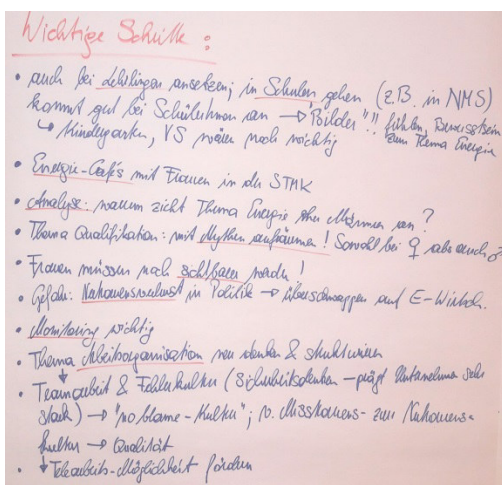 Wichtige Schritte :
• auch bei Lehrlingen ansetzen; in Schulen gehen (z.B. in NMS)
kommt gut bei SchülerInnen an → "Bilder"!! fühlen, Bewusstsein
↳ Kindergarten, VS wären noch wichtig zum Thema Energie
• Energie-Cafés mit Frauen in der STMK
• Analyse: warum zieht Thema Energie eher Männer an?
• Thema Qualifikation: mit Mythen aufräumen! Sowohl bei ♀ als auch ♂
• Frauen müssen noch sichtbarer werden!
• Gefahr: in Politik → überschwappen auf E-Wirtsch.
• Monitoring wichtig
• Thema Arbeitsorganisation neu denken & strukturieren
• Teamarbeit & Fehlerkultur (Sicherheitsdenken – prägt Unternehmen sehr
stark) → "no blame-Kultur"; v. Misstrauens- zur Vertrauens-
kultur → Qualität
• Telearbeits-Möglichkeit fördern